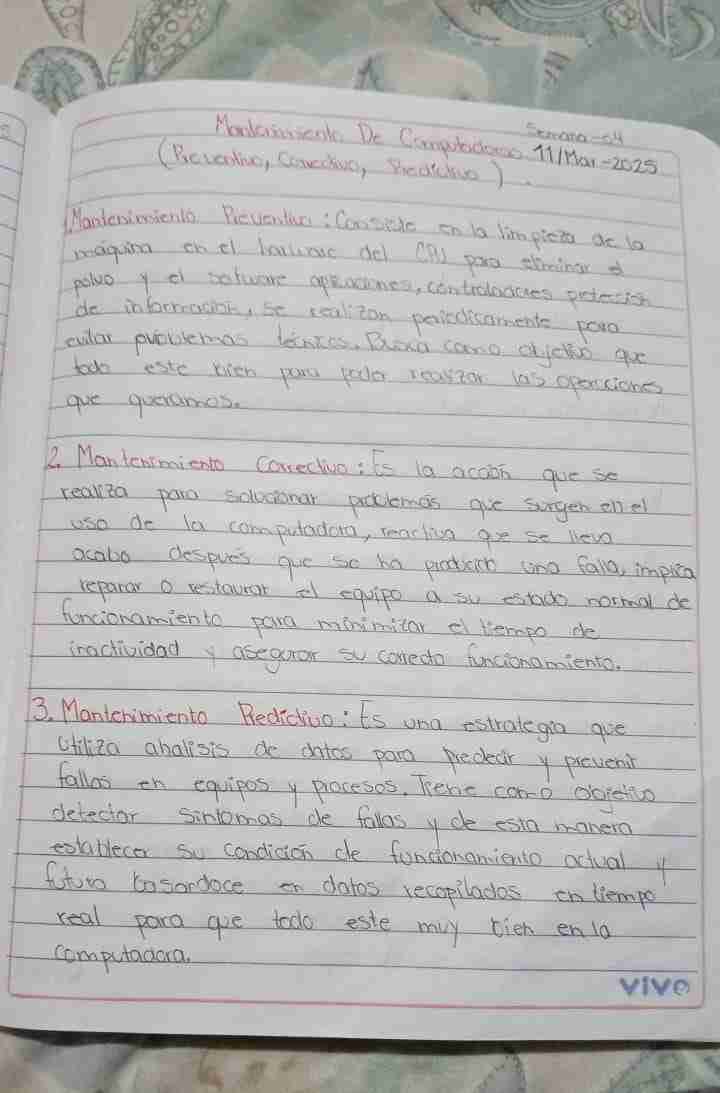 Semana-04
Mantenimiento De Computadoras 11/Mar-2025
(Preventivo, Correctivo, Predictivo).
1. Mantenimiento Preventivo: Consiste en la limpieza de la
máquina en el hadware del CPU para eliminar el
polvo y el sofware aplicaciones, controladores petección
de información, se realizan periodicamente para
evitar problemas técnicos. Busca como objetivo que
todo este bien para poder realizar las operaciones
que queramos.
2. Mantenimiento Correctivo: Es la acción que se
realiza para solucionar problemas que surgen en el
uso de la computadora, reactiva que se lleva
acabo después que se ha producido una falla, implica
reparar o restaurar el equipo a su estado normal de
funcionamiento para minimizar el tiempo de
inactividad y asegurar su correcto funcionamiento.
3. Mantenimiento Predictivo: Es una estrategia que
utiliza analisis de datos para predecir y prevenir
fallas en equipos y procesos. Tiene como objetivo
detectar sintomas de fallas y de esta manera
establecer su condición de funcionamiento actual y
futuro basandoce en datos recopilados en tiempo
real para que todo este muy bien en la
computadora.
vivo